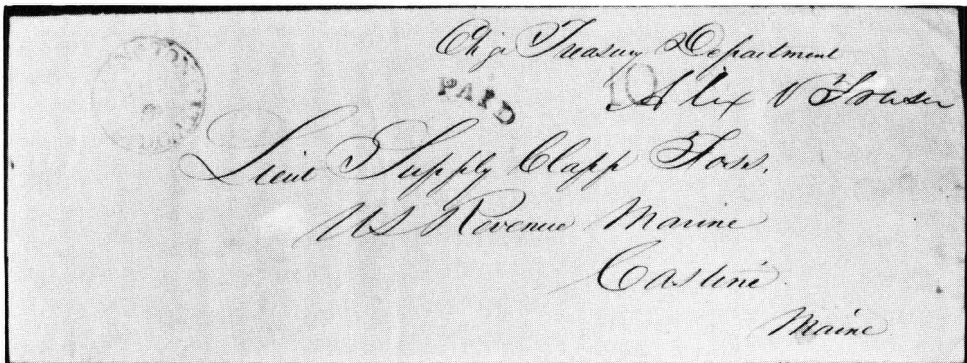 Chg Treasury Department
PAID
10
Alex V Fraser
Lieut Supply Clapp Foss.
US Revenue Marine
Castine
Maine